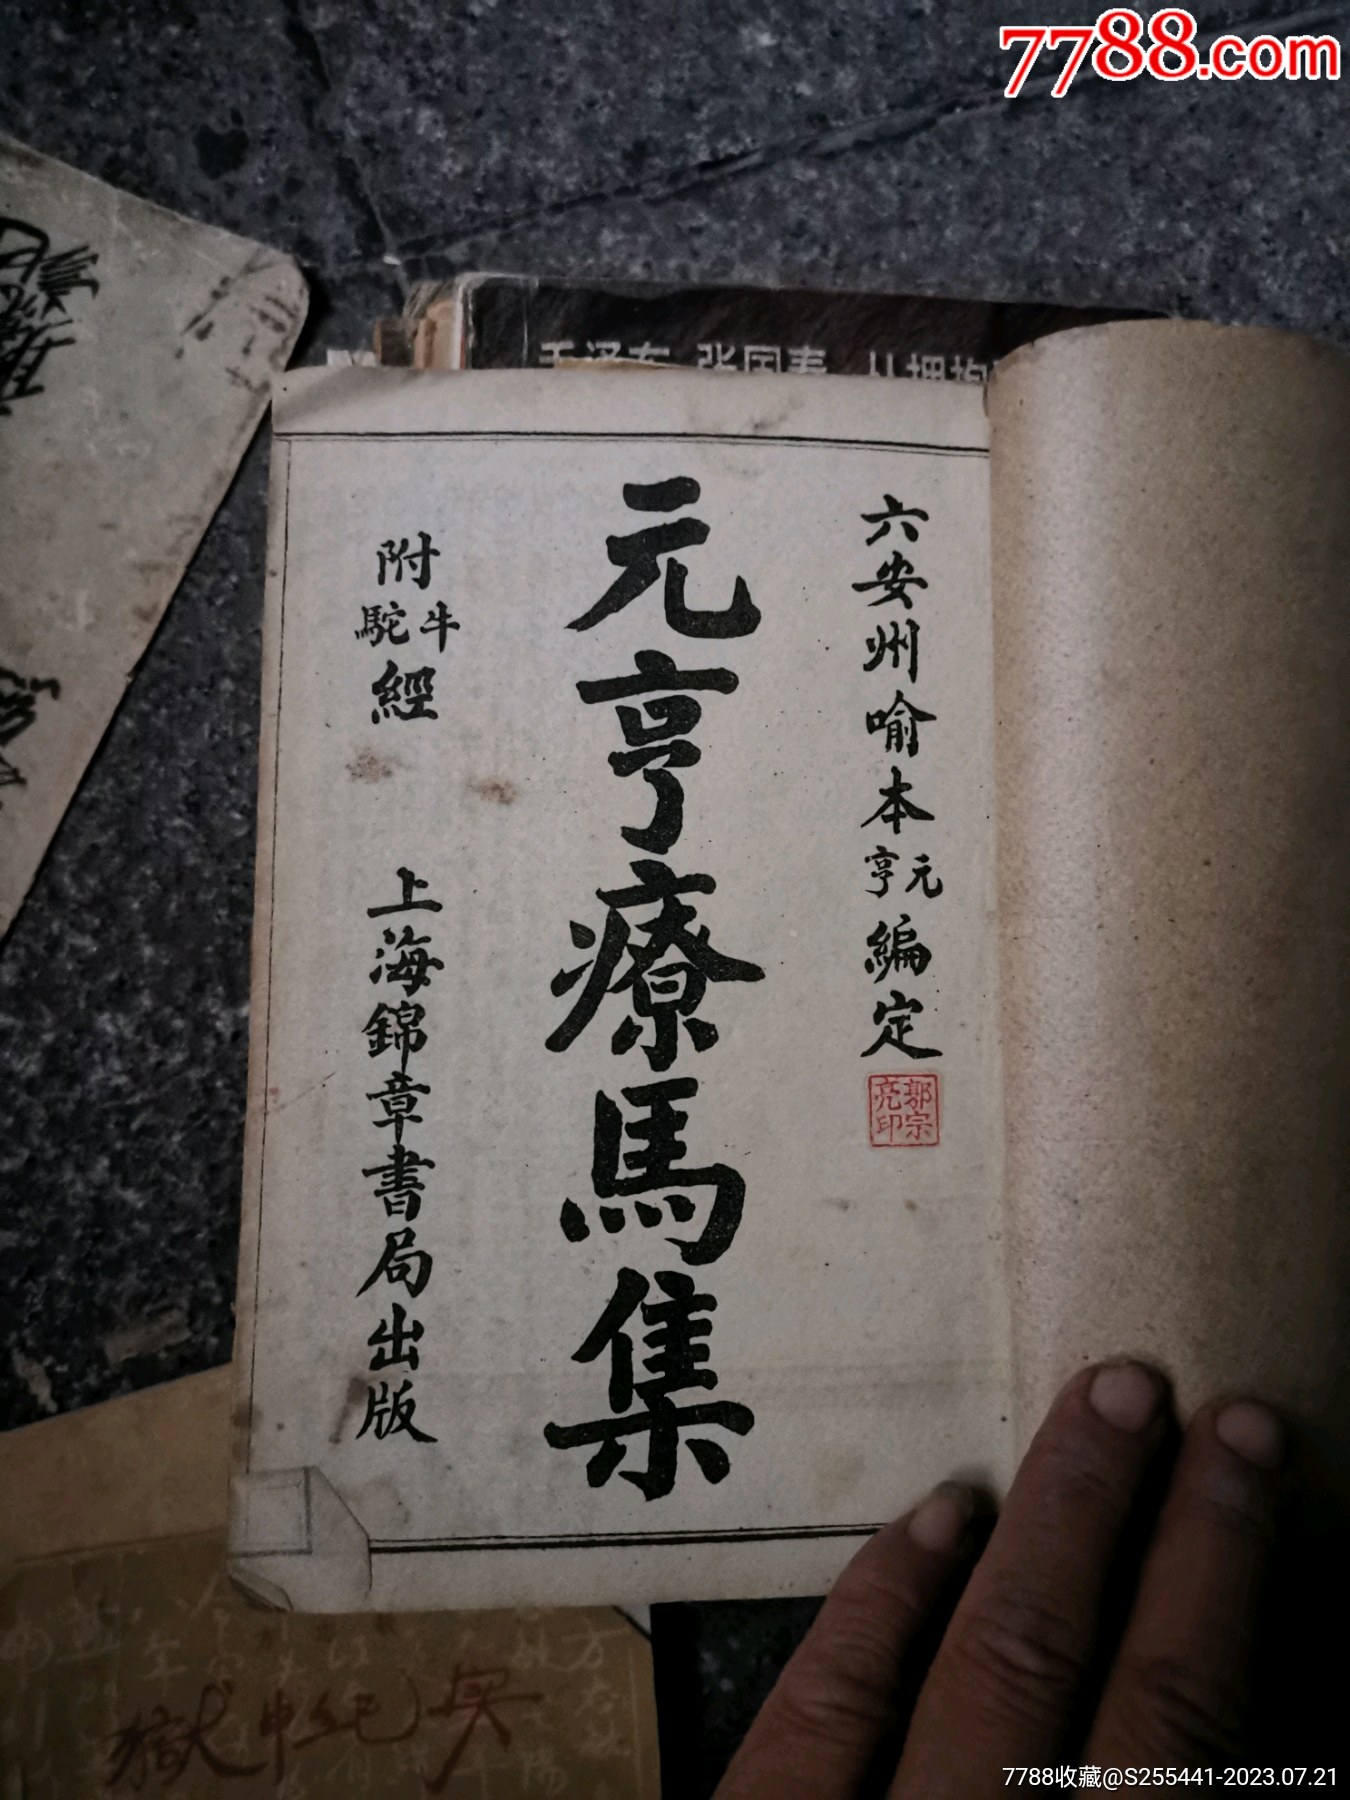 7788.com
毛泽东 张国焘 从拥抱
六安州喻本元亨編定
郭宗亮印
元亨療馬集
附牛駝經
上海錦章書局出版
獄中紀實
7788收藏@S255441-2023.07.21